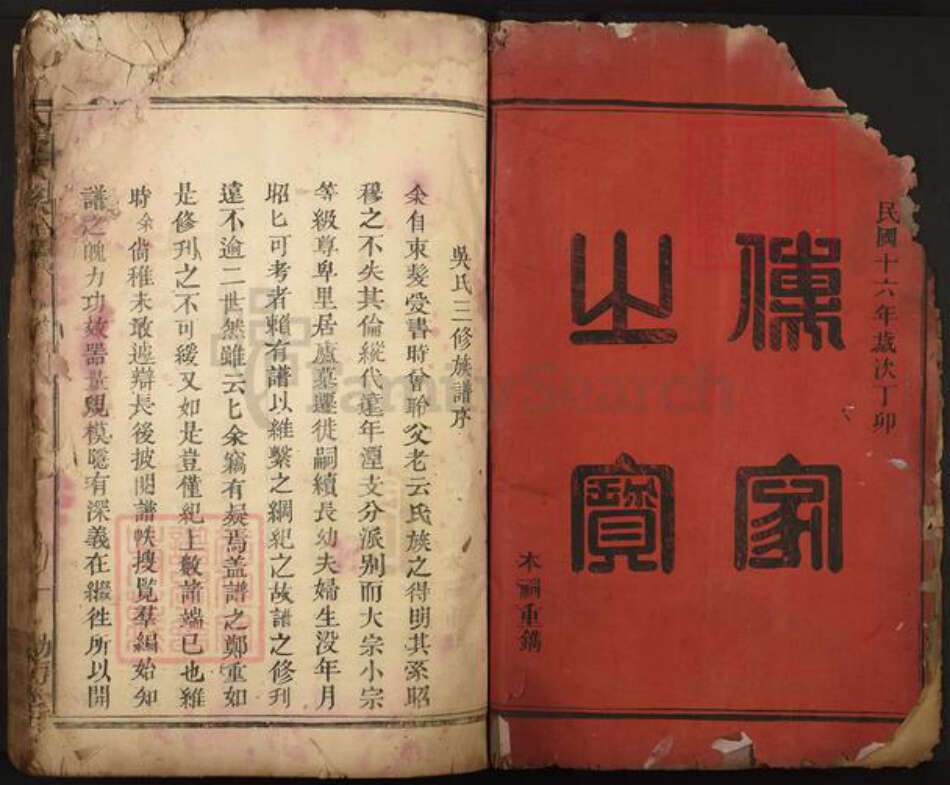 民國十六年歲次丁卯
傳家
之寶
本嗣重鐫
吳氏三修族譜序
余自束髮愛書時曾聆父老云氏族之得明其系昭
穆之不失其倫縱代遠年湮支分派別而大宗小宗
等級尊卑里居廬墓遷徙嗣續長幼夫婦生没年月
昭匕可考者賴有譜以維繫之綱紀之故譜之修刋
遠不逾二世然雖云匕余竊有疑焉盖譜之鄭重如
是修刋之不可緩又如是豈僅紀上數諸端已也維
時余尙稚未敢遽辯長後披閱譜帙搜覧羣編始知
譜之魄力功效器量規模隱有深義在繼徃所以開
FamilySearch